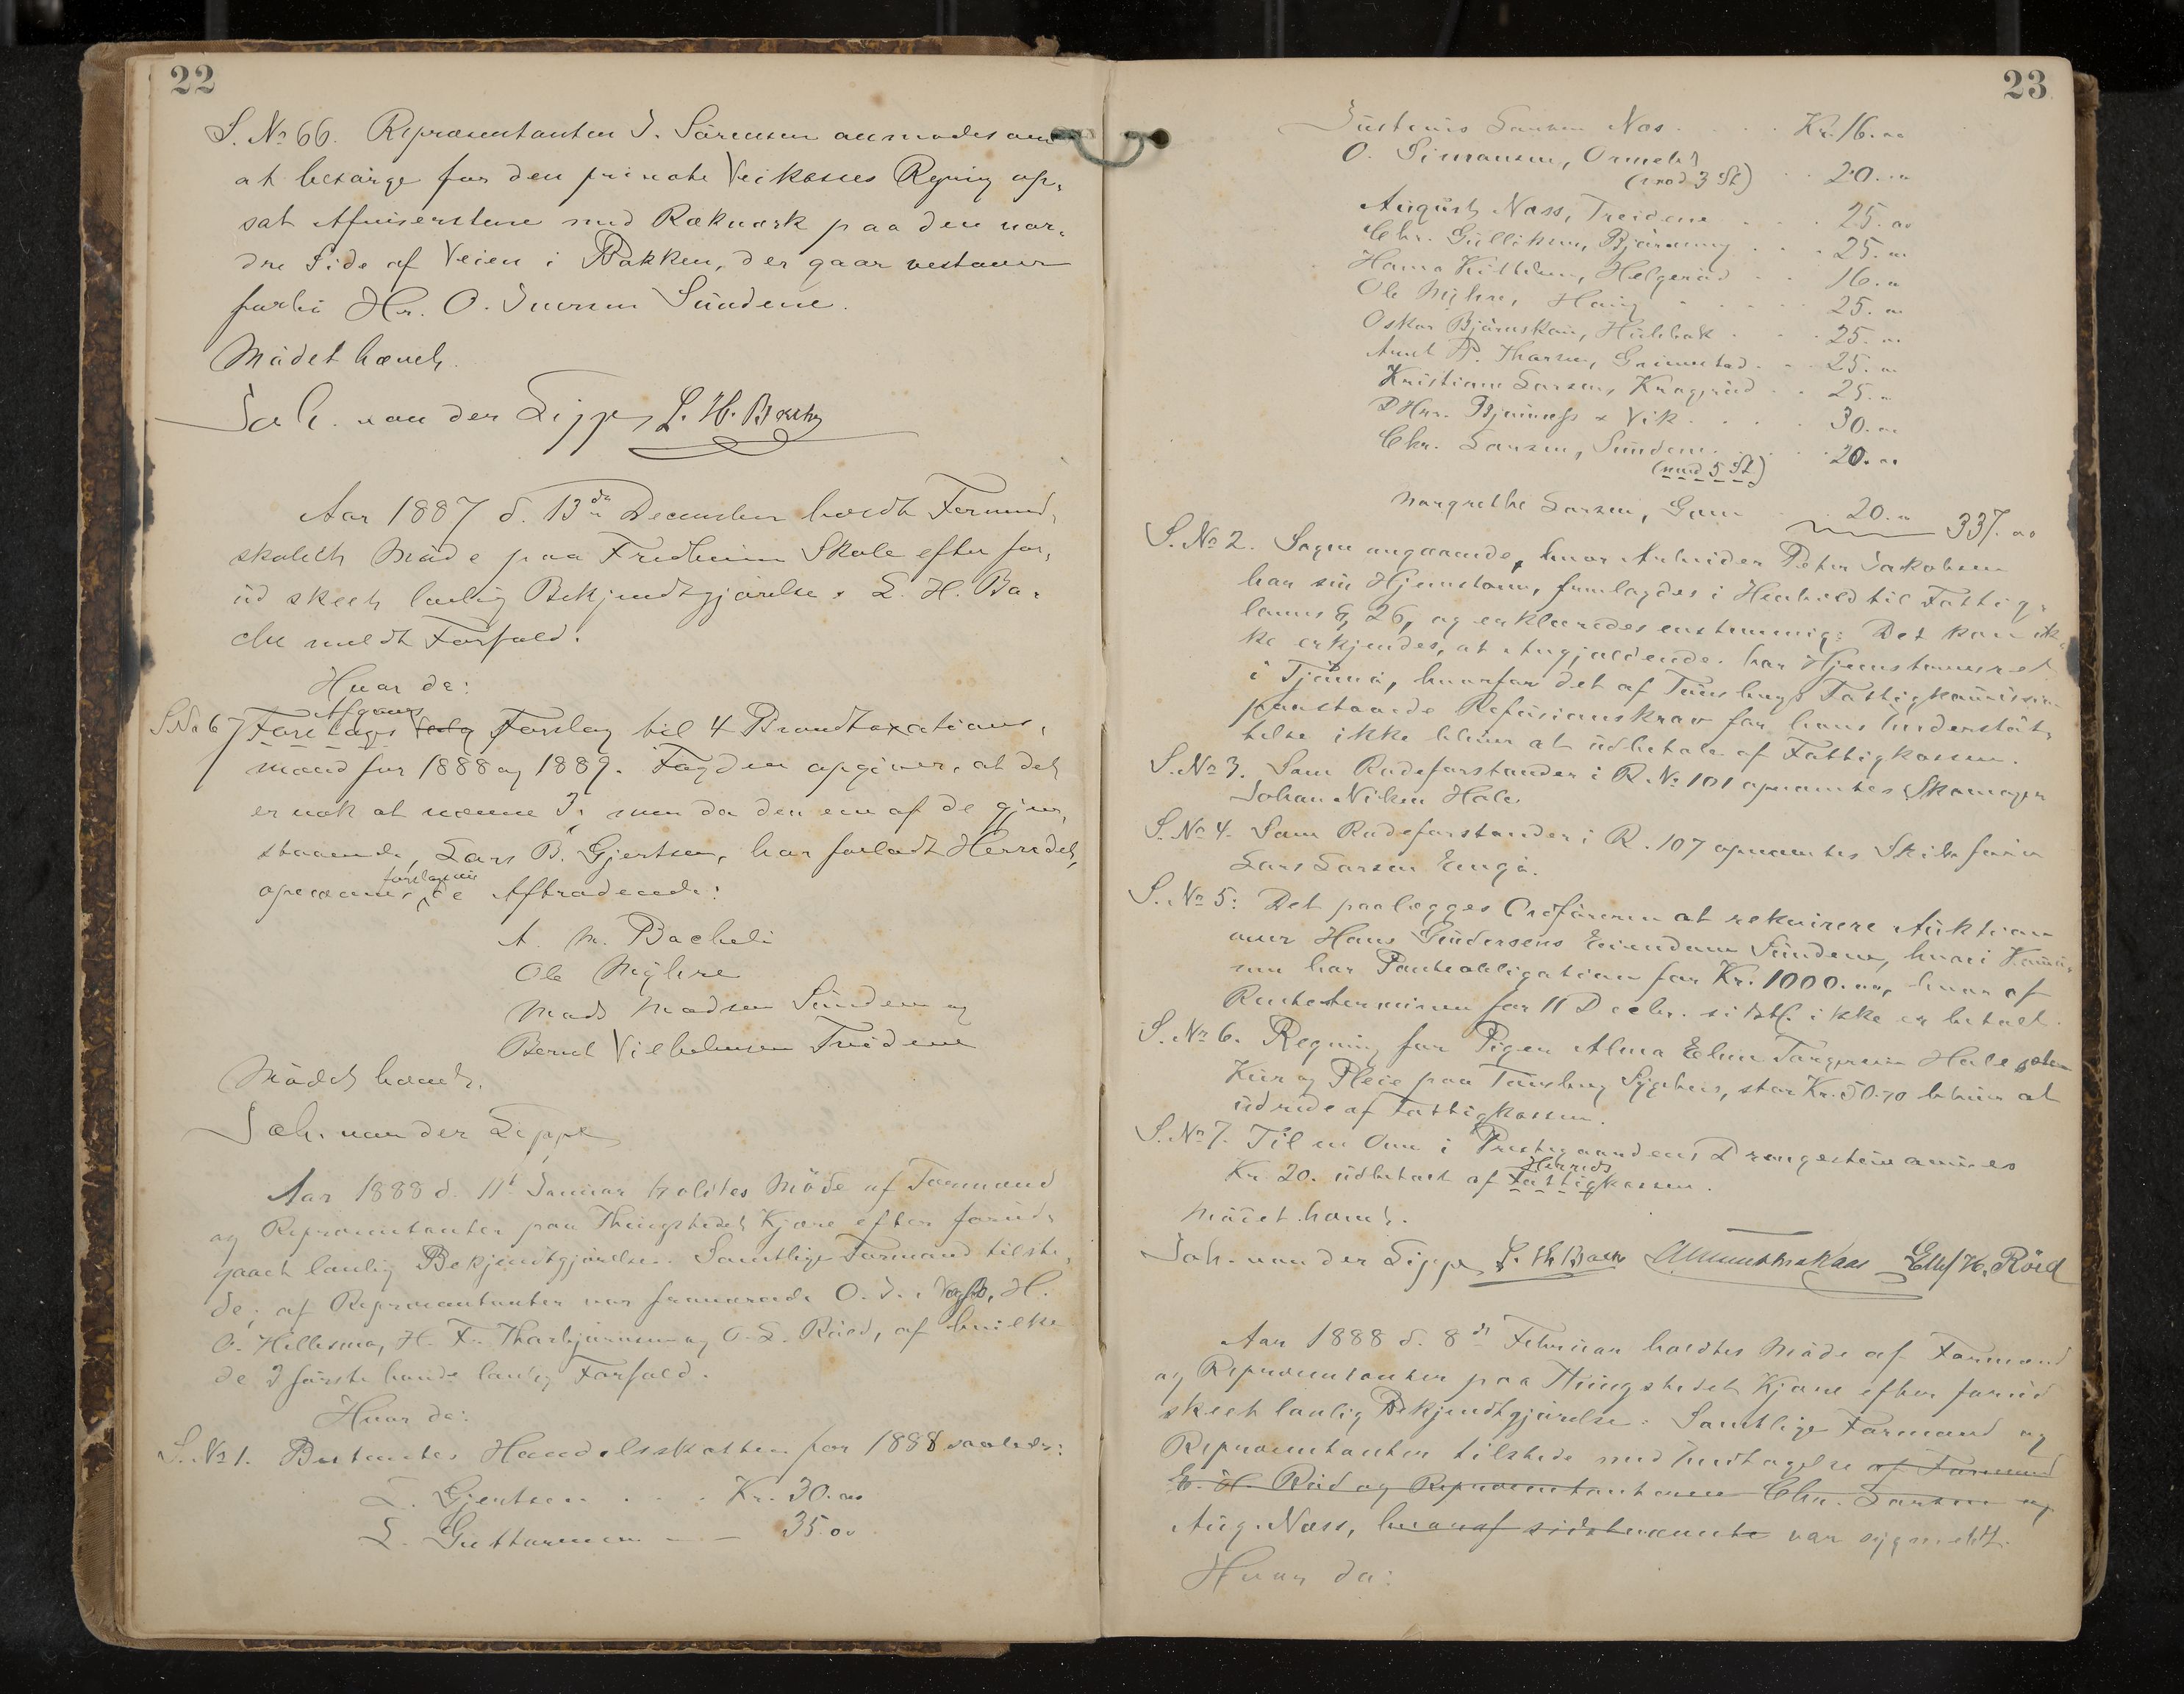 22
S. No 66. Repræsentanten J. Sörensen anmodes om
at besörge for den private Veikasses Regning op-
sat Afviserstene med Rækværk paa den nor-
dre Side af Veien i Bakken, der gaar vestover
forbi Hr. O. Iversen Sundene.
Mödet hævet.
Joh. von der Lippe L. H. Bache
Aar 1887 d. 13de December holdt Formand-
skabet Möde paa Fredheim Skole efter for-
ud skeet lovlig Bekjendtgjörelse. L. H. Ba-
che meldt Forfald.
Hvor da:
Afgaves
S. No 67 Foretages Valg Forslag til 4 Brandtaxations-
mænd for 1888 og 1889. Fogden opgiver, at det
er nok at nævne 3, men da den ene af de gjen-
staaende, Lars B. Gjertsen, har forladt Herredet,
opnævnes foreløbig de Aftrædende:
A. M. Bacheli
Ole Myhre
Mads Madsen Sunden og
Bernt Vilhelmsen Treidene
Mödet hævet.
Joh. von der Lippe
Aar 1888 d. 11te Januar holdtes Möde af Formænd
og Repræsentanter paa Thingstedet Kjære efter forud-
gaaet lovlig Bekjendtgjörelse. Samtlige Formænd tilste-
de; af Repræsentanter var fraværende O. J. Vagle, H.
O. Hellesmo, H. F. Thorbjörnsen og O. L. Röed, af hvilke
de 2 förste havde lovlig Forfald.
Hvor da:
S. No 1. Bestemtes Handelsskatten for 1888 saaledes:
L. Gjertsen . . . Kr. 30.00
L. Guttormsen — — 35.00
23
Justenis Larsen Nes . . . Kr. 16.00
O. Simonsen, Ormelet
(mod 3 St) . . 20.00
August Næss, Treidene . . . 25.00
Chr. Gulliksen, Bjärning . . . 25.00
Hans Kittilsen, Helgeröd . . 16.00
Ole Myhre, Houg . . . . 25.00
Oskar Björnskau, Hulebak . . . 25.00
Arnt P. Thorsen, Grimestad . . . 25.00
Kristian Larsen, Krageröd . . 25.00
DHrr. Bjönness & Vik . . . . 30.00
Chr. Larsen, Sundene . . . 20.00
(mod 5 St)
Margrethe Larsen, Gaen 20.00 337.00
S. No 2. Sagen angaaende, hvor Arbeider Peter Jakobsen
har sin Hjemstavn, fremlagdes i Henhold til Fattig-
lovens § 26, og erklæredes enstemmig: Det kan ik-
ke erkjendes, at Angjældende har Hjemstavnsret
i Tjömö, hvorfor det af Tönsbergs Fattigkommission
paastaaede Refusionskrav for hans Understöt-
telse ikke bliver at udbetale af Fattigkassen.
S. No 3. Som Rodeforstander i R. No 101 opnævntes Skomager
Johan Nilsen Hole.
S. No 4. Som Rodeforstander i R. 107 opnævntes Skibsförer
Lars Larsen Engö.
S. No 5. Det paalægges Ordföreren at rekvirere Auktion
over Hans Gundersens Eiendom Sundene, hvori Kommu-
nen har Panteobligation for Kr. 1000.00, hvoraf
Renteterminen for 11 Decbr. sidstl. ikke er betalt.
S. No 6. Regning for Pigen Alma Elise Torgersen Hole
Kur og Pleie paa Tönsberg Sygehus, stor Kr. 50.70 bliver at
udrede af Fattigkassen.
S. No 7. Til en Ovn i Præstegaardens Drengestue anvises
Herreds
Kr. 20. udbetalt af Fattigkassen.
Mödet hævet.
Joh. von der Lippe L. H. Bache Ellef H. Röed
Aar 1888 d. 8de Februar holdtes Möde af Formænd
og Repræsentanter paa Thingstedet Kjære efter forud
skeet lovlig Bekjendtgjörelse. Samtlige Formænd og
Repræsentanter tilstede med Undtagelse af Formand
E. H. Röd og Repræsentanterne Chr. Larsen og
Aug. Næss, hvoraf sidstnævnte var sygmeldt.
Hvor da: